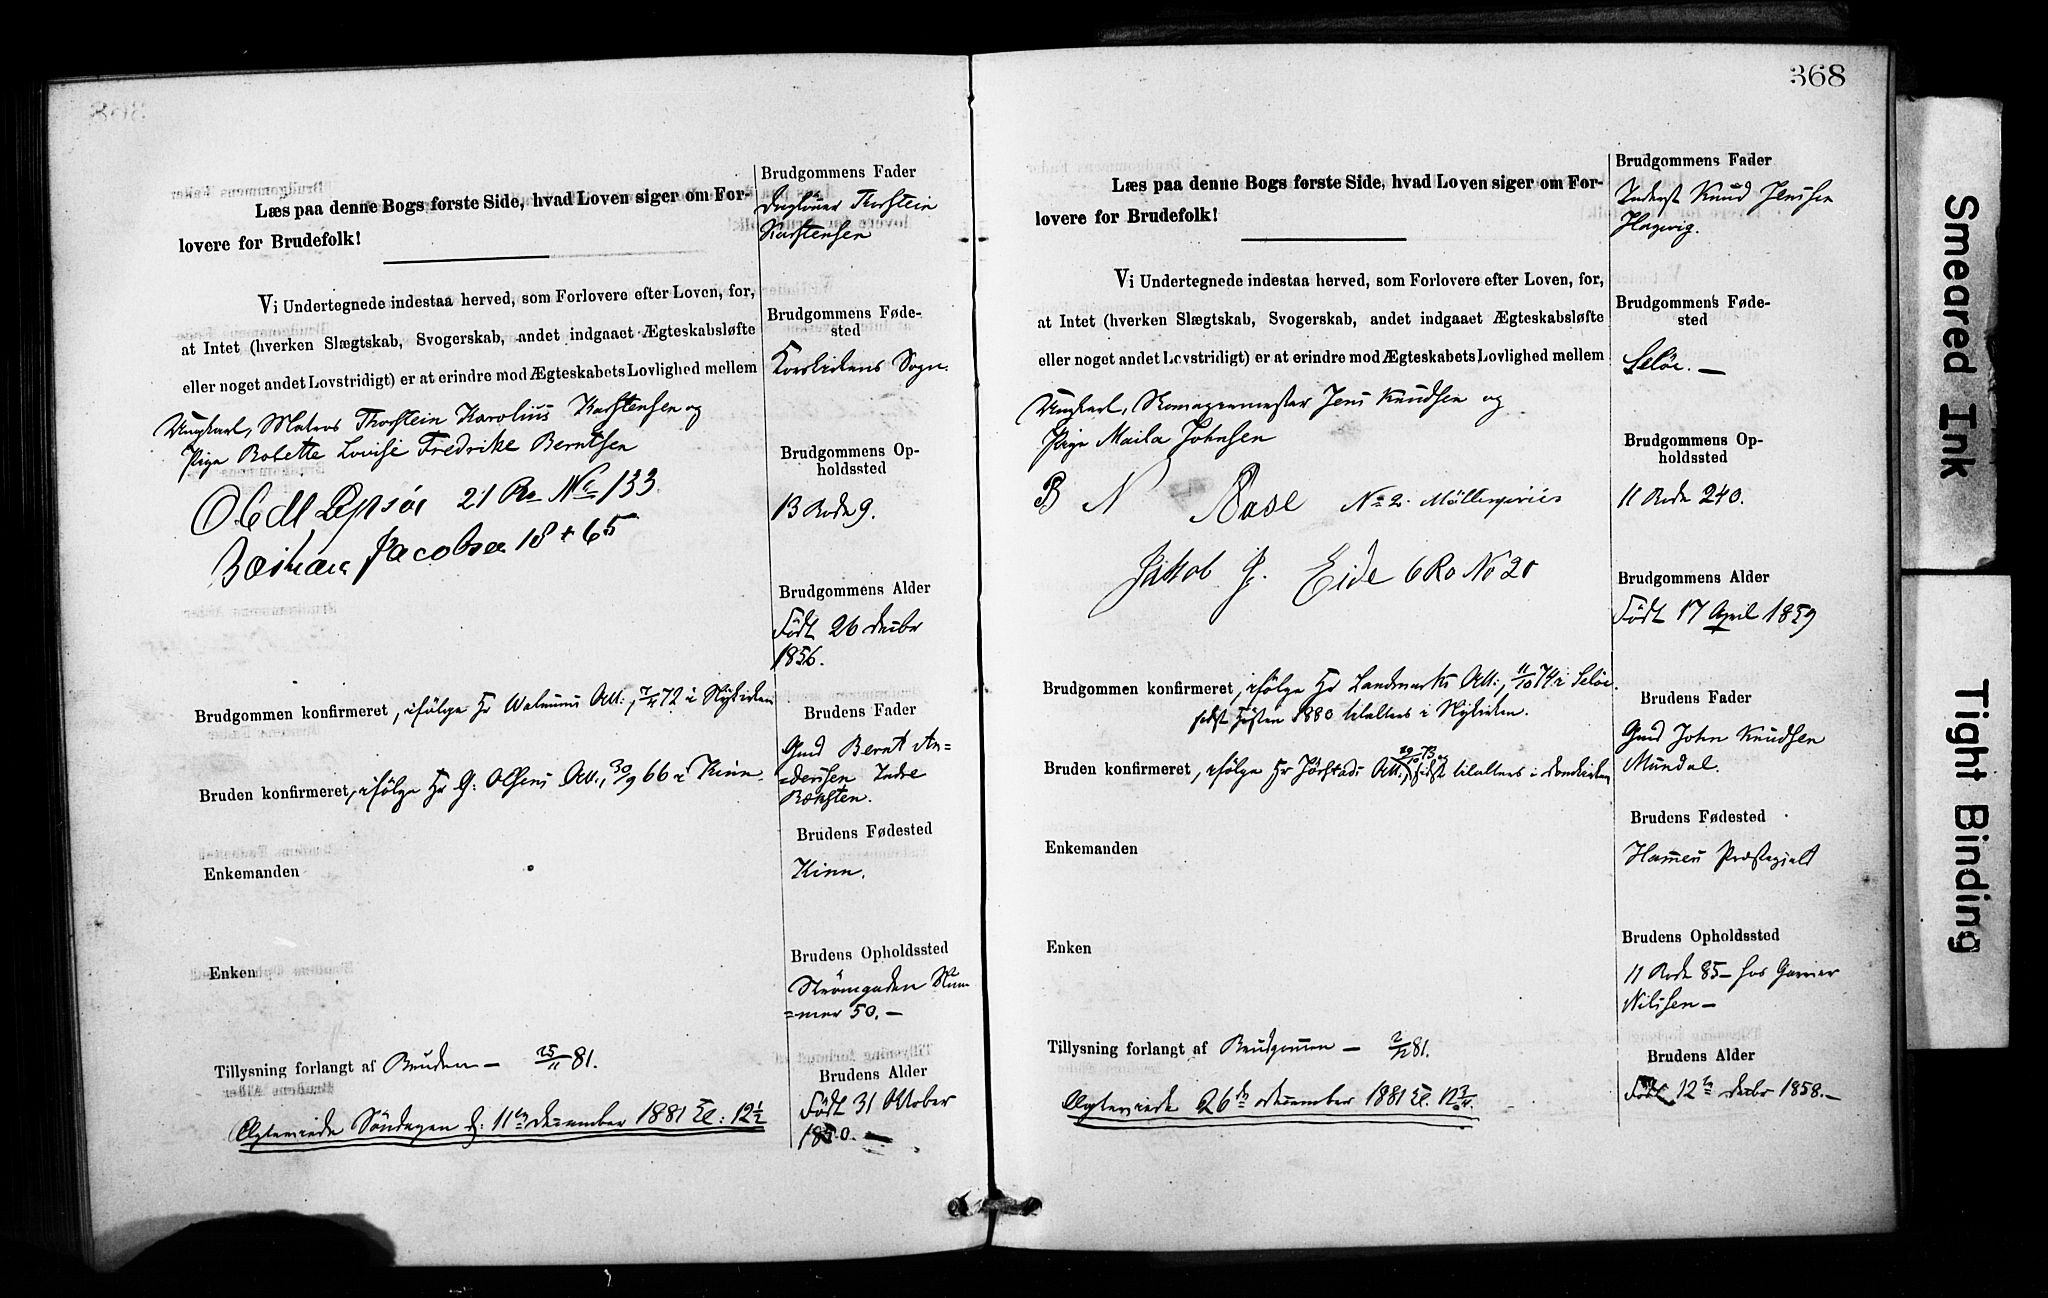 Læs paa denne Bogs første Side, hvad Loven siger om For-
lovere for Brudefolk!
Vi Undertegnede indestaa herved, som Forlovere efter Loven, for,
at Intet (hverken Slægtskab, Svogerskab, andet indgaaet Ægteskabsløfte
eller noget andet Lovstridigt) er at erindre mod Ægteskabets Lovlighed mellem
Ungkarl, Matros Thorstein Karolius Karstensen og
Pige Bolette Lovise Fredrike Berntsen
21 Ro No 133
Jacobsen 18 + 65
Brudgommen konfirmeret, ifølge Hr Att:, 7/4 72 i Nykirken
Bruden konfirmeret, ifølge Hr G. Olsens Att., 30/9 66 i Kinn.
Enkemanden
Enken
Tillysning forlangt af Bruden – 25/11 81.
Ægteviede Søndagen d: 11te December 1881 Kl: 12½
Brudgommens Fader
Thorstein
Karstensen
Brudgommens Føde-
sted
Korskirkens Sogn.
Brudgommens Op-
holdssted
13 Rode 9.
Brudgommens Alder
Født 26 Decbr
1856.
Brudens Fader
Gmd Bernt An=
=dersen Indre
Brudens Fødested
Kinn.
Brudens Opholdssted
Strømgaden Num
=mer 50. –
Brudens Alder
Født 31 Oktober
1850. –
368
Læs paa denne Bogs første Side, hvad Loven siger om For-
lovere for Brudefolk!
Vi Undertegnede indestaa herved, som Forlovere efter Loven, for,
at Intet (hverken Slægtskab, Svogerskab, andet indgaaet Ægteskabsløfte
eller noget andet Lovstridigt) er at erindre mod Ægteskabets Lovlighed mellem
Ungkarl, Skomagermester Jens Knudsen og
Pige Maila Johnsen
B N Aase No 2
Jakob J. Eide 6 Ro No 20
Brudgommen konfirmeret, ifølge Hr Landmarks Att:, 11/10 74 i Seløe
sidst Høsten 1880 tilalters i Nykirken.
Bruden konfirmeret, ifølge Hr Jørstads Att., 19/10 73 og sidst tilalters i Domkirken
Enkemanden
Enken
Tillysning forlangt af Brudgommen – 2/12 81.
Ægteviede 26de December 1881 Kl. 12¾.
Brudgommens Fader
Inderst Knud Jensen
Hagevig.
Brudgommens Føde-
sted
Seløe. –
Brudgommens Op-
holdssted
11 Rode 240.
Brudgommens Alder
Født 17 April 1859
Brudens Fader
Gmd John Knudsen
Mundal.
Brudens Fødested
Hammer Præstegjelt
Brudens Opholdssted
11 Rode 85 – hos Garver
Nilssen –
Brudens Alder
Født 12te Decbr 1858. –
Smeared Ink
Tight Binding